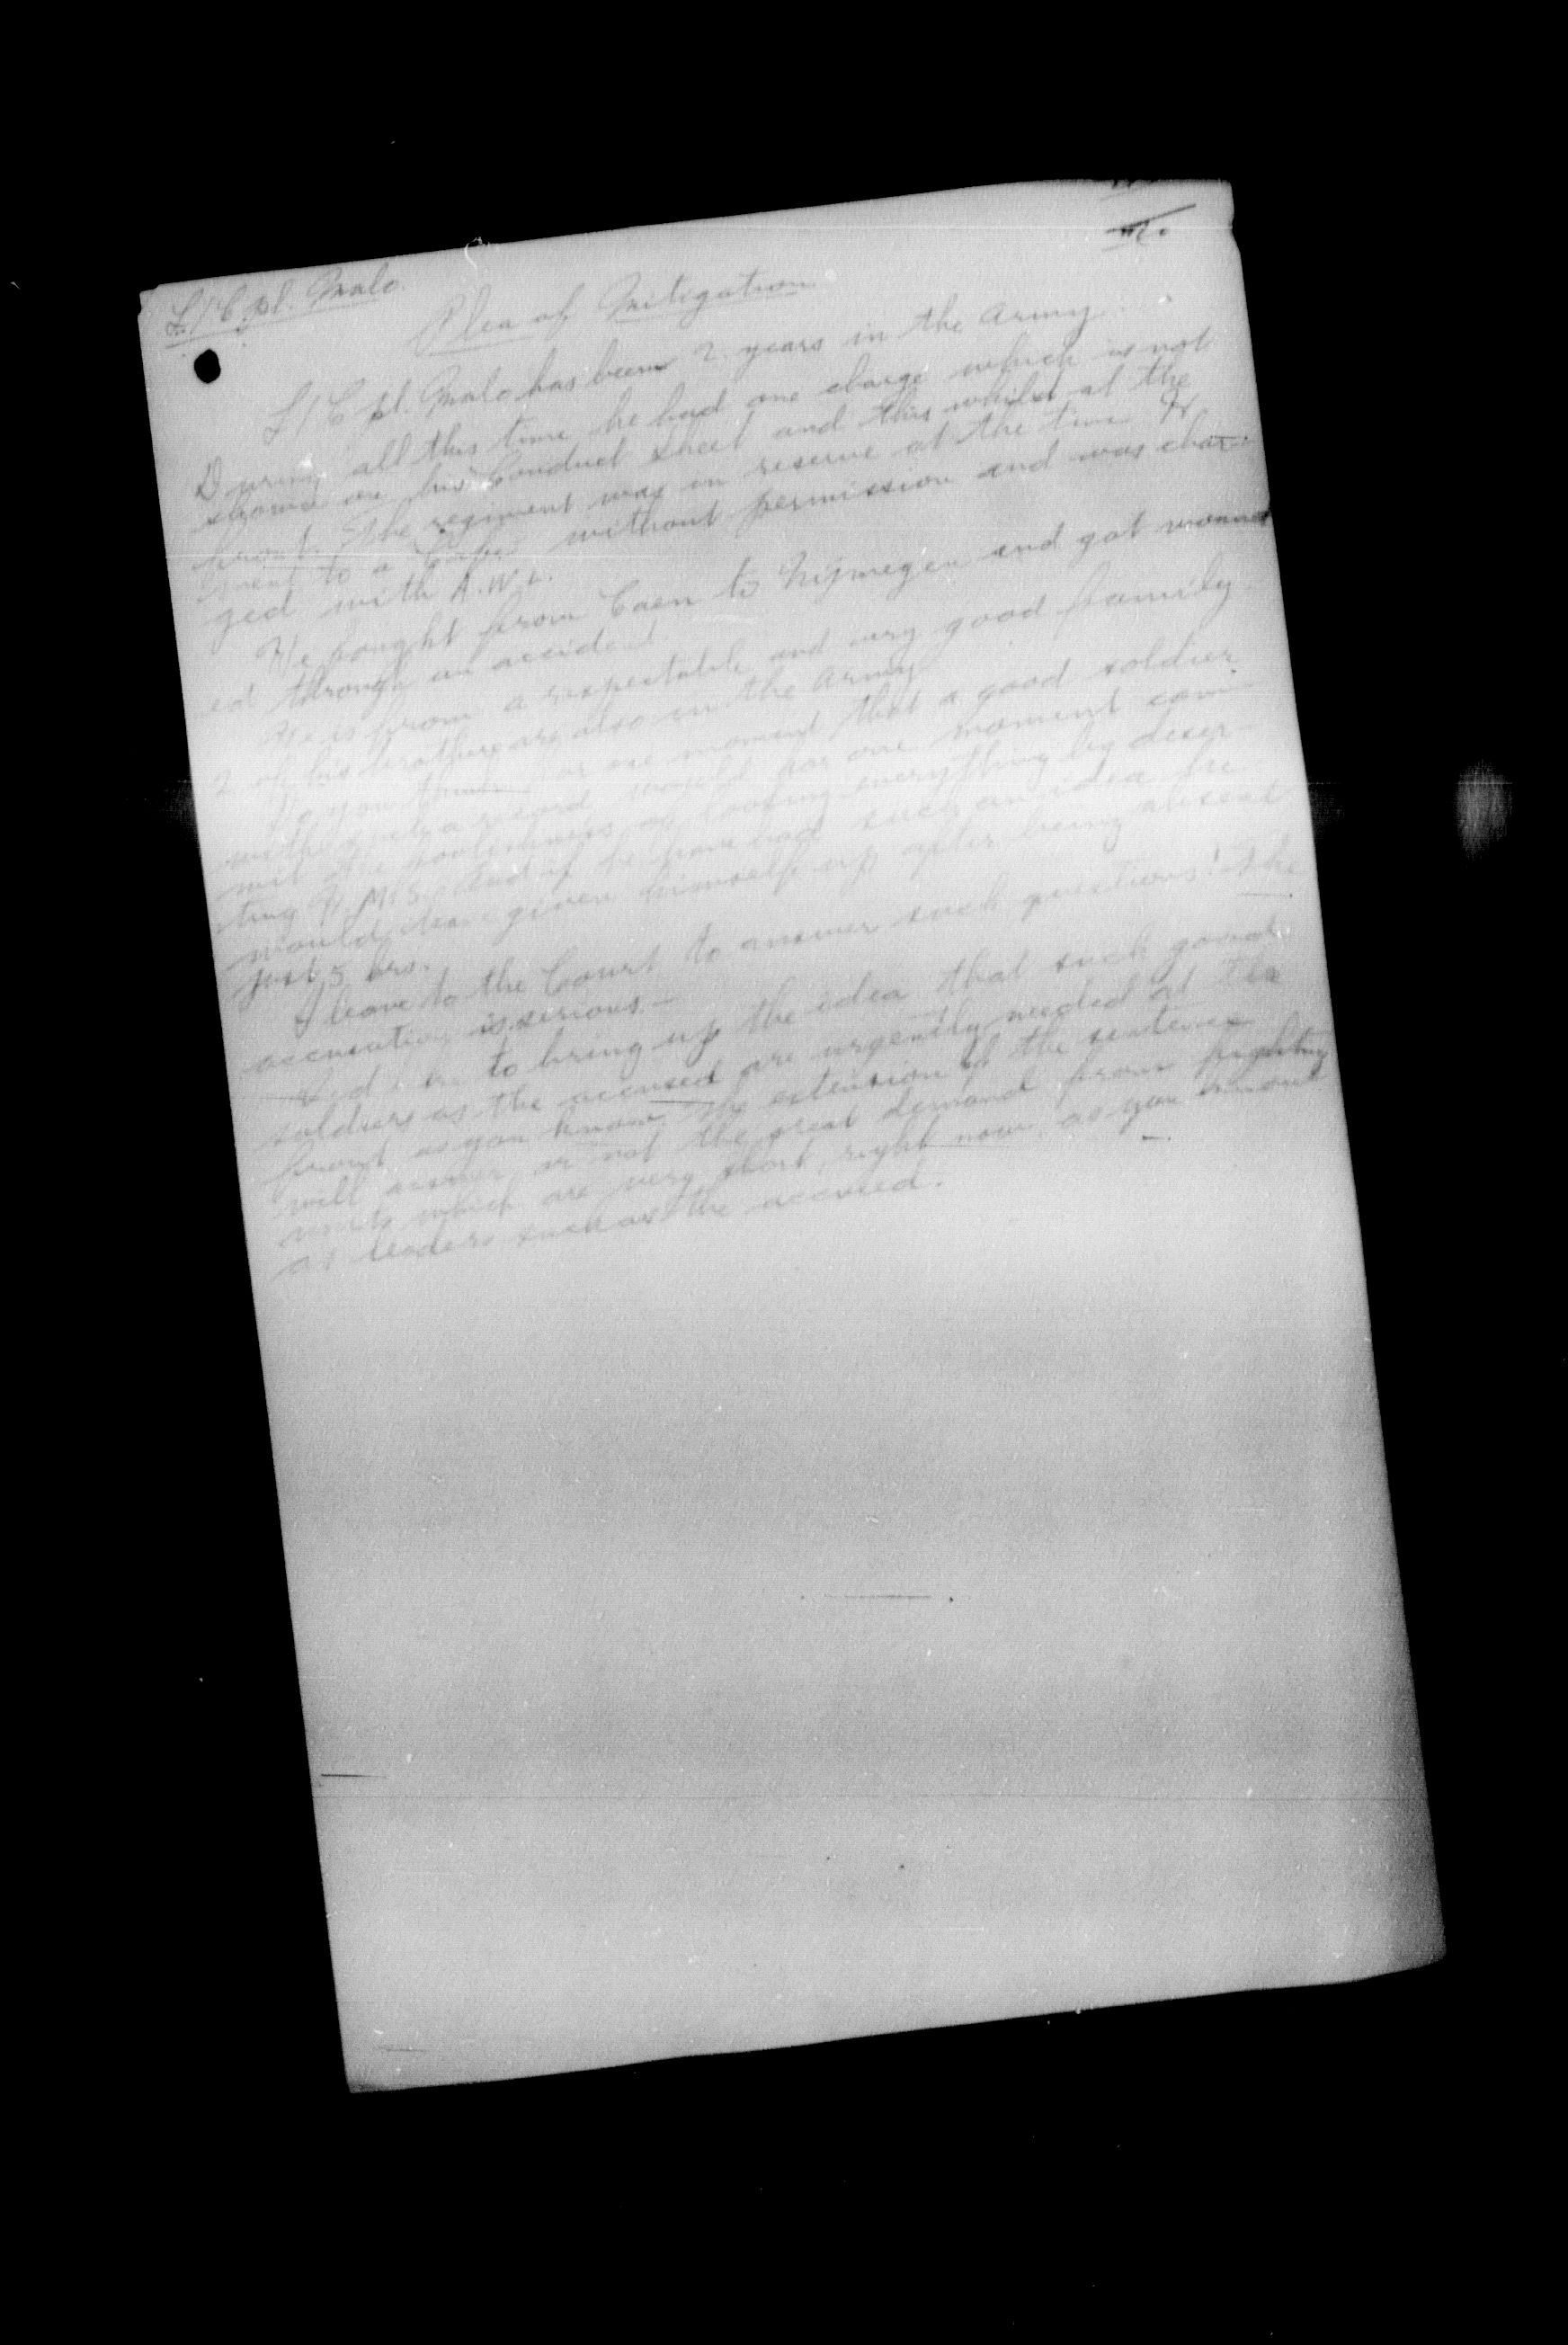 L/Cpl. Malo.
Plea of Mitigation
L/Cpl. Malo has been 2 years in the Army.
During all this time he had one charge which is not
shown on his Conduct Sheet and this whilst at the
front. The regiment was in reserve at the time. He
went to a Café without permission and was char-
ged with A.W.L.
He fought from Caen to Nijmegen and got wound
ed through an accident.
He is from a respectable and very good family.
2 of his brothers are also in the Army.
Do you think for one moment that a good soldier
with such a record would for one moment com-
mit the foolishness of loosing everything by deser-
ting H.M.S. And if he have had such an idea he
would have given himself up after being absent
just 5 hrs.
I leave to the Court to answer such questions! The
accusation is serious. —
to bring up the idea that such good
soldiers as the accused are urgently needed at the
front as you know. The extension of the sentence
will answer or not the great demand from fighting
units which are very short right now as you know
as leaders such as the accused.